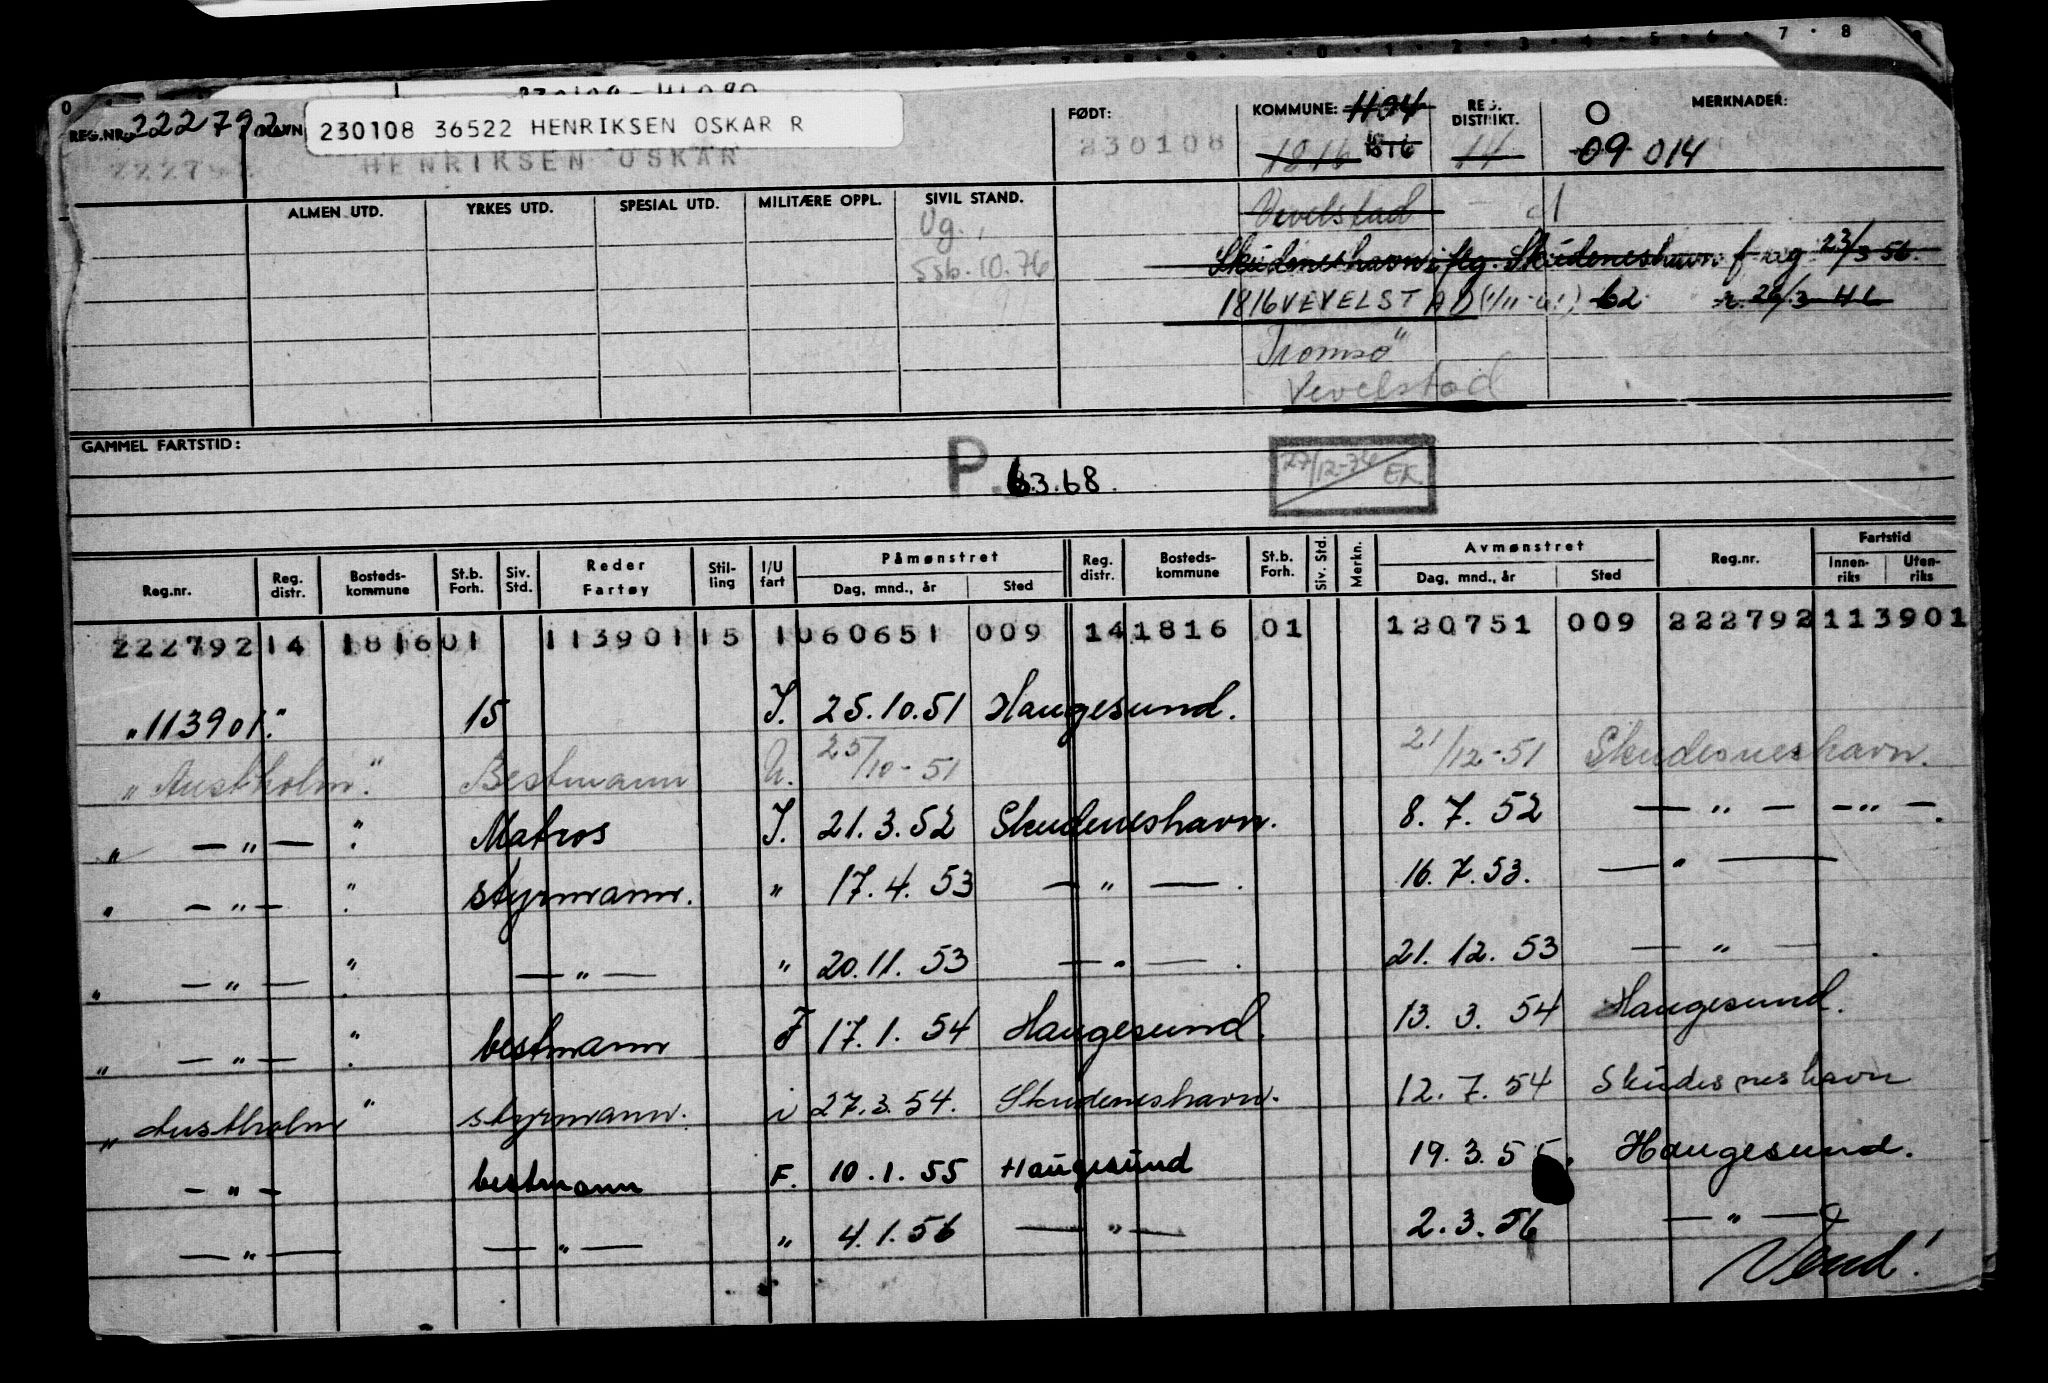 REG.NR. 222792 NAVN 230108 36522 HENRIKSEN OSKAR R FØDT: KOMMUNE: 1104 REG. DISTRIKT. O MERKNADER:
222792 HENRIKSEN OSKAR 230108 1816 1816 14 09 014
ALMEN UTD. YRKES UTD. SPESIAL UTD. MILITÆRE OPPL. SIVIL STAND. Vevelstad
Ug.
Skudeneshavn iflg. Skudeneshavn f reg 23/3 56.
Ssb. 10.76
1816 VEVELSTAD 62 r. 26/3
Tromsø"
Vevelstad
GAMMEL FARTSTID:
P. 63.68. 27/12-76 EK.
Reg.nr. Reg. distr. Bosteds-kommune St.b. Forh. Siv. Std. Reder Fartøy Stil-ling I/U fart Påmønstret Dag, mnd., år Sted Reg. distr. Bosteds-kommune St.b. Forh. Siv. Std. Merkn. Avmønstret Dag, mnd., år Sted Reg.nr. Fartstid Innen-riks Uten-riks
222792 14 1816 01 113901 15 1 060651 009 14 1816 01 120751 009 222792 113901
"113901." 15 I. 25.10.51 Haugesund.
"Austholm." Bestmann U. 25/10-51 21/12-51 Skudesneshavn.
" — " — " Matros I. 21.3.52 Skudeneshavn. 8.7.52 — " — — " —.
" — " — " styrmann. " 17.4.53 — " —. 16.7.53. — " —
" — " — " — " — " 20.11.53 — " —. 21.12.53 — " —
" — " — " bestmann F 17.1.54 Haugesund. 13.3.54 Haugesund.
"Austholm" styrmann. i 27.3.54. Skudeneshavn. 12.7.54 Skudesneshavn
— " — bestmann F. 10.1.55 Haugesund 19.3.55. Haugesund.
— " — — " — " 4.1.56 — " — 2.3.56 — " —
Vend!